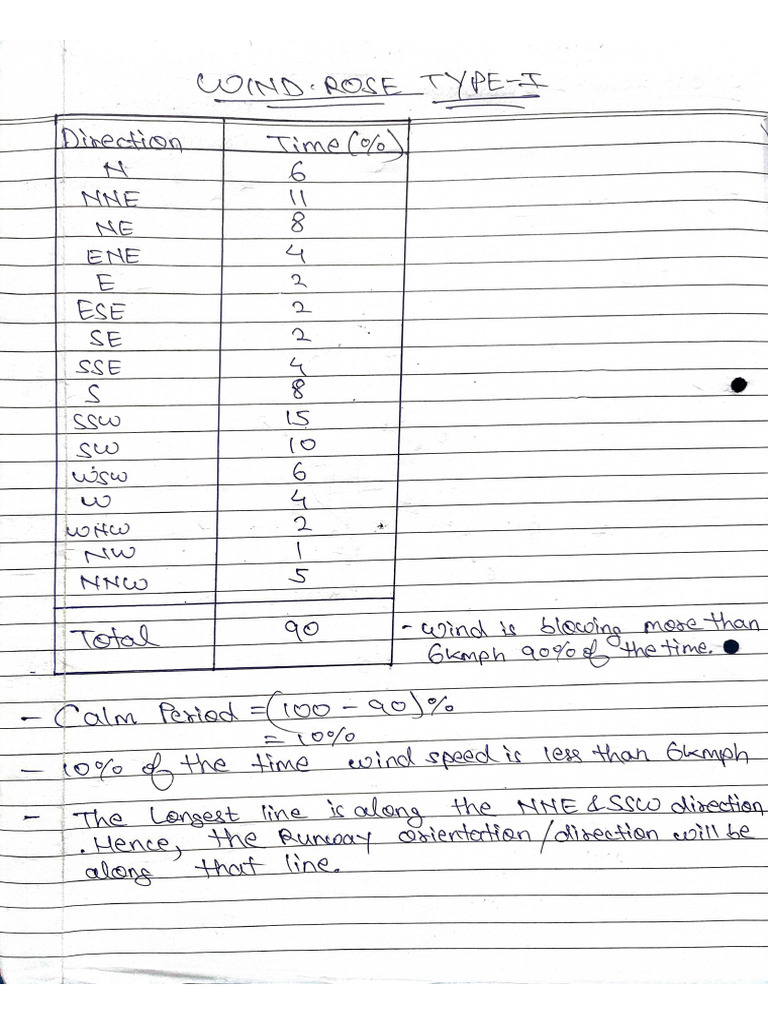 WIND-ROSE TYPE-I
Direction Time (%)
N 6
NNE 11
NE 8
ENE 4
E 2
ESE 2
SE 2
SSE 4
S 8
SSW 15
SW 10
WSW 6
W 4
WNW 2
NW 1
NNW 5
Total 90 - Wind is blowing more than
6kmph 90% of the time.
- Calm Period = (100 - 90)%
= 10%
- 10% of the time wind speed is less than 6kmph
- The Longest line is along the NNE & SSW direction
. Hence, the Runway orientation/direction will be
along that line.